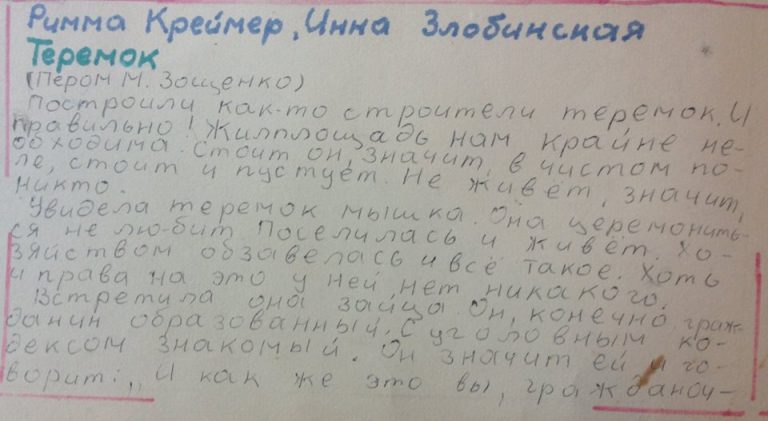 Римма Креймер, Инна Злобинская
Теремок
(Пером М. Зощенко)
Построили как-то строители теремок. И
правильно! Жилплощадь нам крайне не-
обходима. Стоит он, значит, в чистом по-
ле, стоит и пустует. Не живёт, значит,
никто.
Увидела теремок мышка. Она церемонить-
ся не любит. Поселилась и живёт. Хо-
зяйством обзавелась и всё такое. Хоть
и права на это у ней нет никакого.
Встретила она зайца. Он, конечно, граж-
данин образованный. С уголовным ко-
дексом знакомый. Он значит ей и го-
ворит: „И как же это вы, гражданоч-